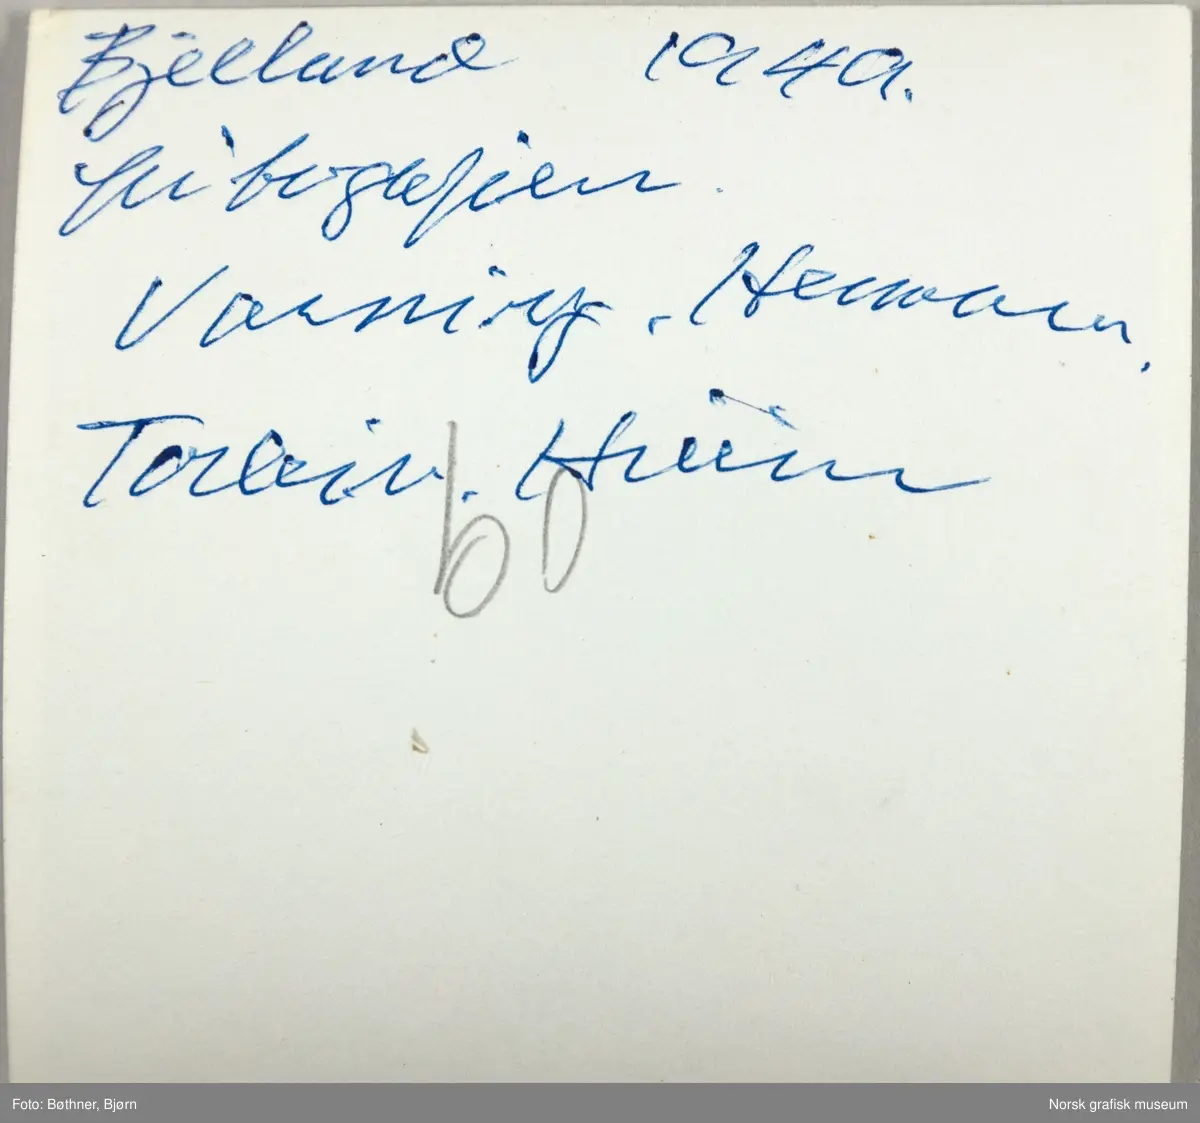 Bjelland 1949.
Litografien.
Varning. Herman.
Torleiv.
60
Foto: Bøthner, Bjørn
Norsk grafisk museum